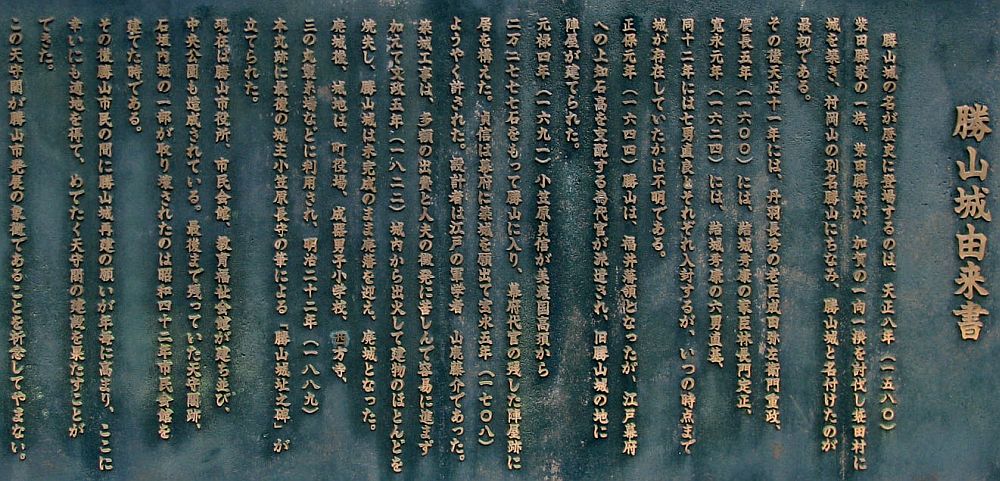 勝山城由来書
勝山城の名が歴史に登場するのは、天正八年（一五八〇）
柴田勝家の一族、柴田勝安が、加賀の一向一揆を討伐し袋田村に
城を築き、村岡山の別名勝山にちなみ、勝山城と名付けたのが
最初である。
その後天正十一年には、丹羽長秀の老臣成田弥左衛門重政、
慶長五年（一六〇〇）には、結城秀康の家臣林長門定正、
寛永元年（一六二四）には、結城秀康の六男直基、
同十二年には七男直良とそれぞれ入封するが、いつの時点まで
城が存在していたかは不明である。
正保元年（一六四四）勝山は、福井藩預となったが、江戸幕府
への上知石高を支配する為代官が派遣され、旧勝山城の地に
陣屋が建てられた。
元禄四年（一六九一）小笠原貞信が美濃国高須から
二万二七七七石をもって勝山に入り、幕府代官の残した陣屋跡に
居を構えた。貞信は幕府に築城を願出て宝永五年（一七〇八）
ようやく許された。設計者は江戸の軍学者 山鹿藤介であった。
築城工事は、多額の出費と人夫の徴発に苦しんで容易に進まず
加えて文政五年（一八二二）城内から出火して建物のほとんどを
焼失し、勝山城は未完成のまま廃藩を迎え、廃城となった。
廃城後、城地は、町役場、成器男子小学校、四方寺、
二の丸製糸場などに利用され、明治二十二年（一八八九）
本丸跡に最後の城主小笠原長守の筆による「勝山城址之碑」が
立てられた。
現在は勝山市役所、市民会館、教育福祉会館が建ち並び、
中央公園も造成されている。最後まで残っていた天守閣跡、
石垣内堀の一部が取り壊されたのは昭和四十二年市民会館を
建てた時である。
その後勝山市民の間に勝山城再建の願いが年毎に高まり、ここに
幸いにも適地を得て、めでたく天守閣の建設を果たすことが
できた。
この天守閣が勝山市発展の象徴であることを祈念してやまない。